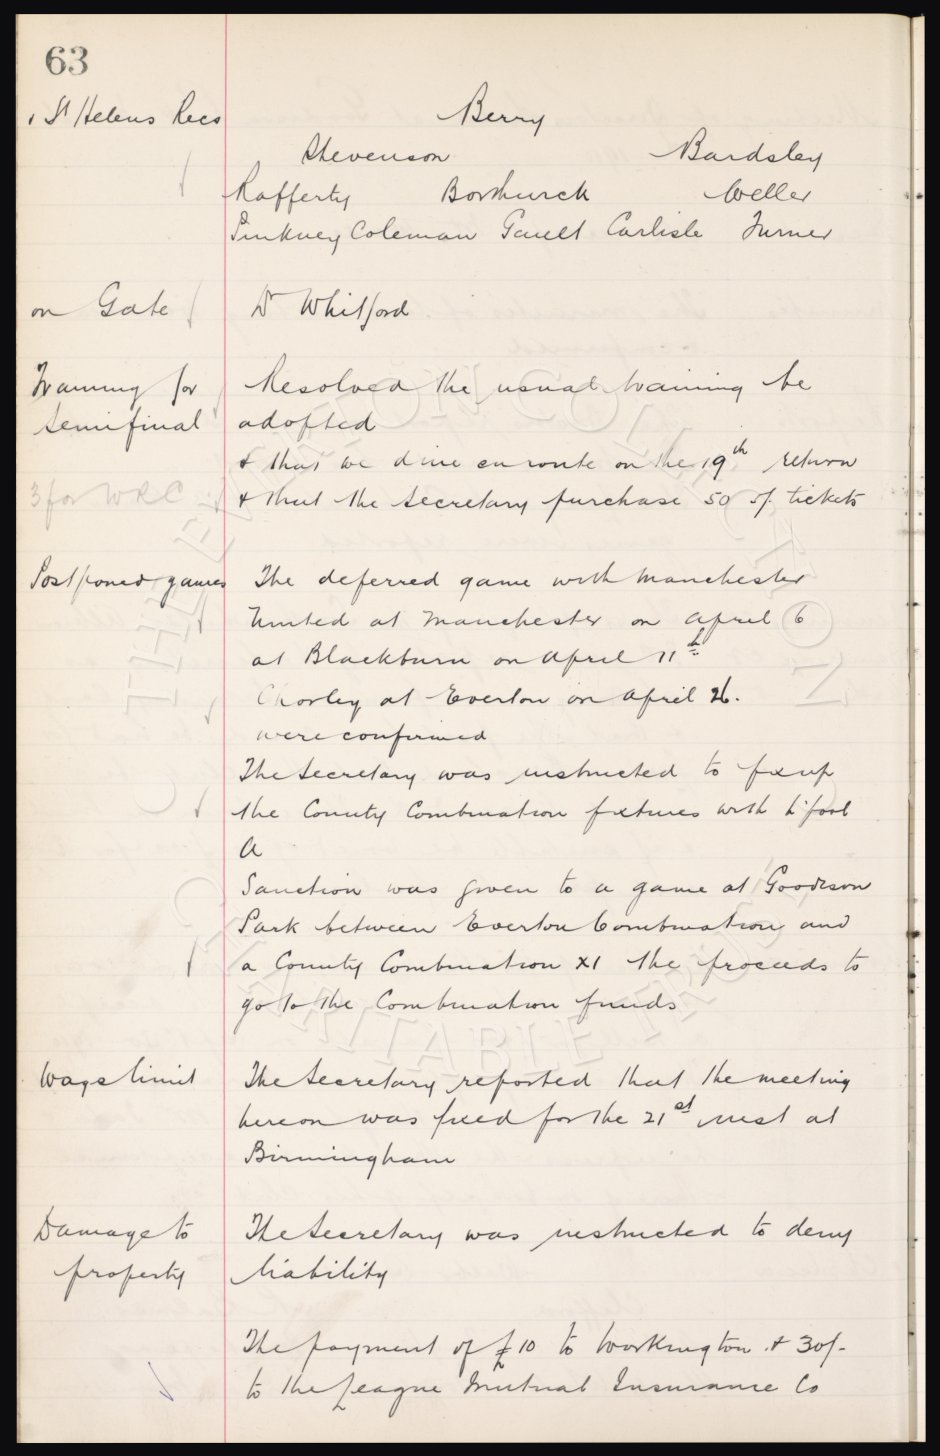 63
v St Helens Recs
Berry
Stevenson Bardsley
Rafferty Borthwick Weller
Pinkney Coleman Gault Carlisle Turner
on Gate Dr Whitford
Training for Resolved the usual training be
Semifinal adopted
& that we dine en route on the 19th return
3 for WRC & that the Secretary purchase 50 5/- tickets
Postponed games The deferred game with Manchester
United at Manchester on April 6
at Blackburn on April 11th
Chorley at Everton on April 26.
were confirmed
The Secretary was instructed to fix up
the County Combination fixtures with L'pool
A
Sanction was given to a game at Goodison
Park between Everton Combination and
a County Combination XI the proceeds to
go to the Combination funds
Wage limit The Secretary reported that the meeting
hereon was fixed for the 21st inst at
Birmingham
Damage to The Secretary was instructed to deny
property liability
The payment of £10 to Workington & 30/-
to the League Mutual Insurance Co
THE EVERTON COLLECTION
CHARITABLE TRUST